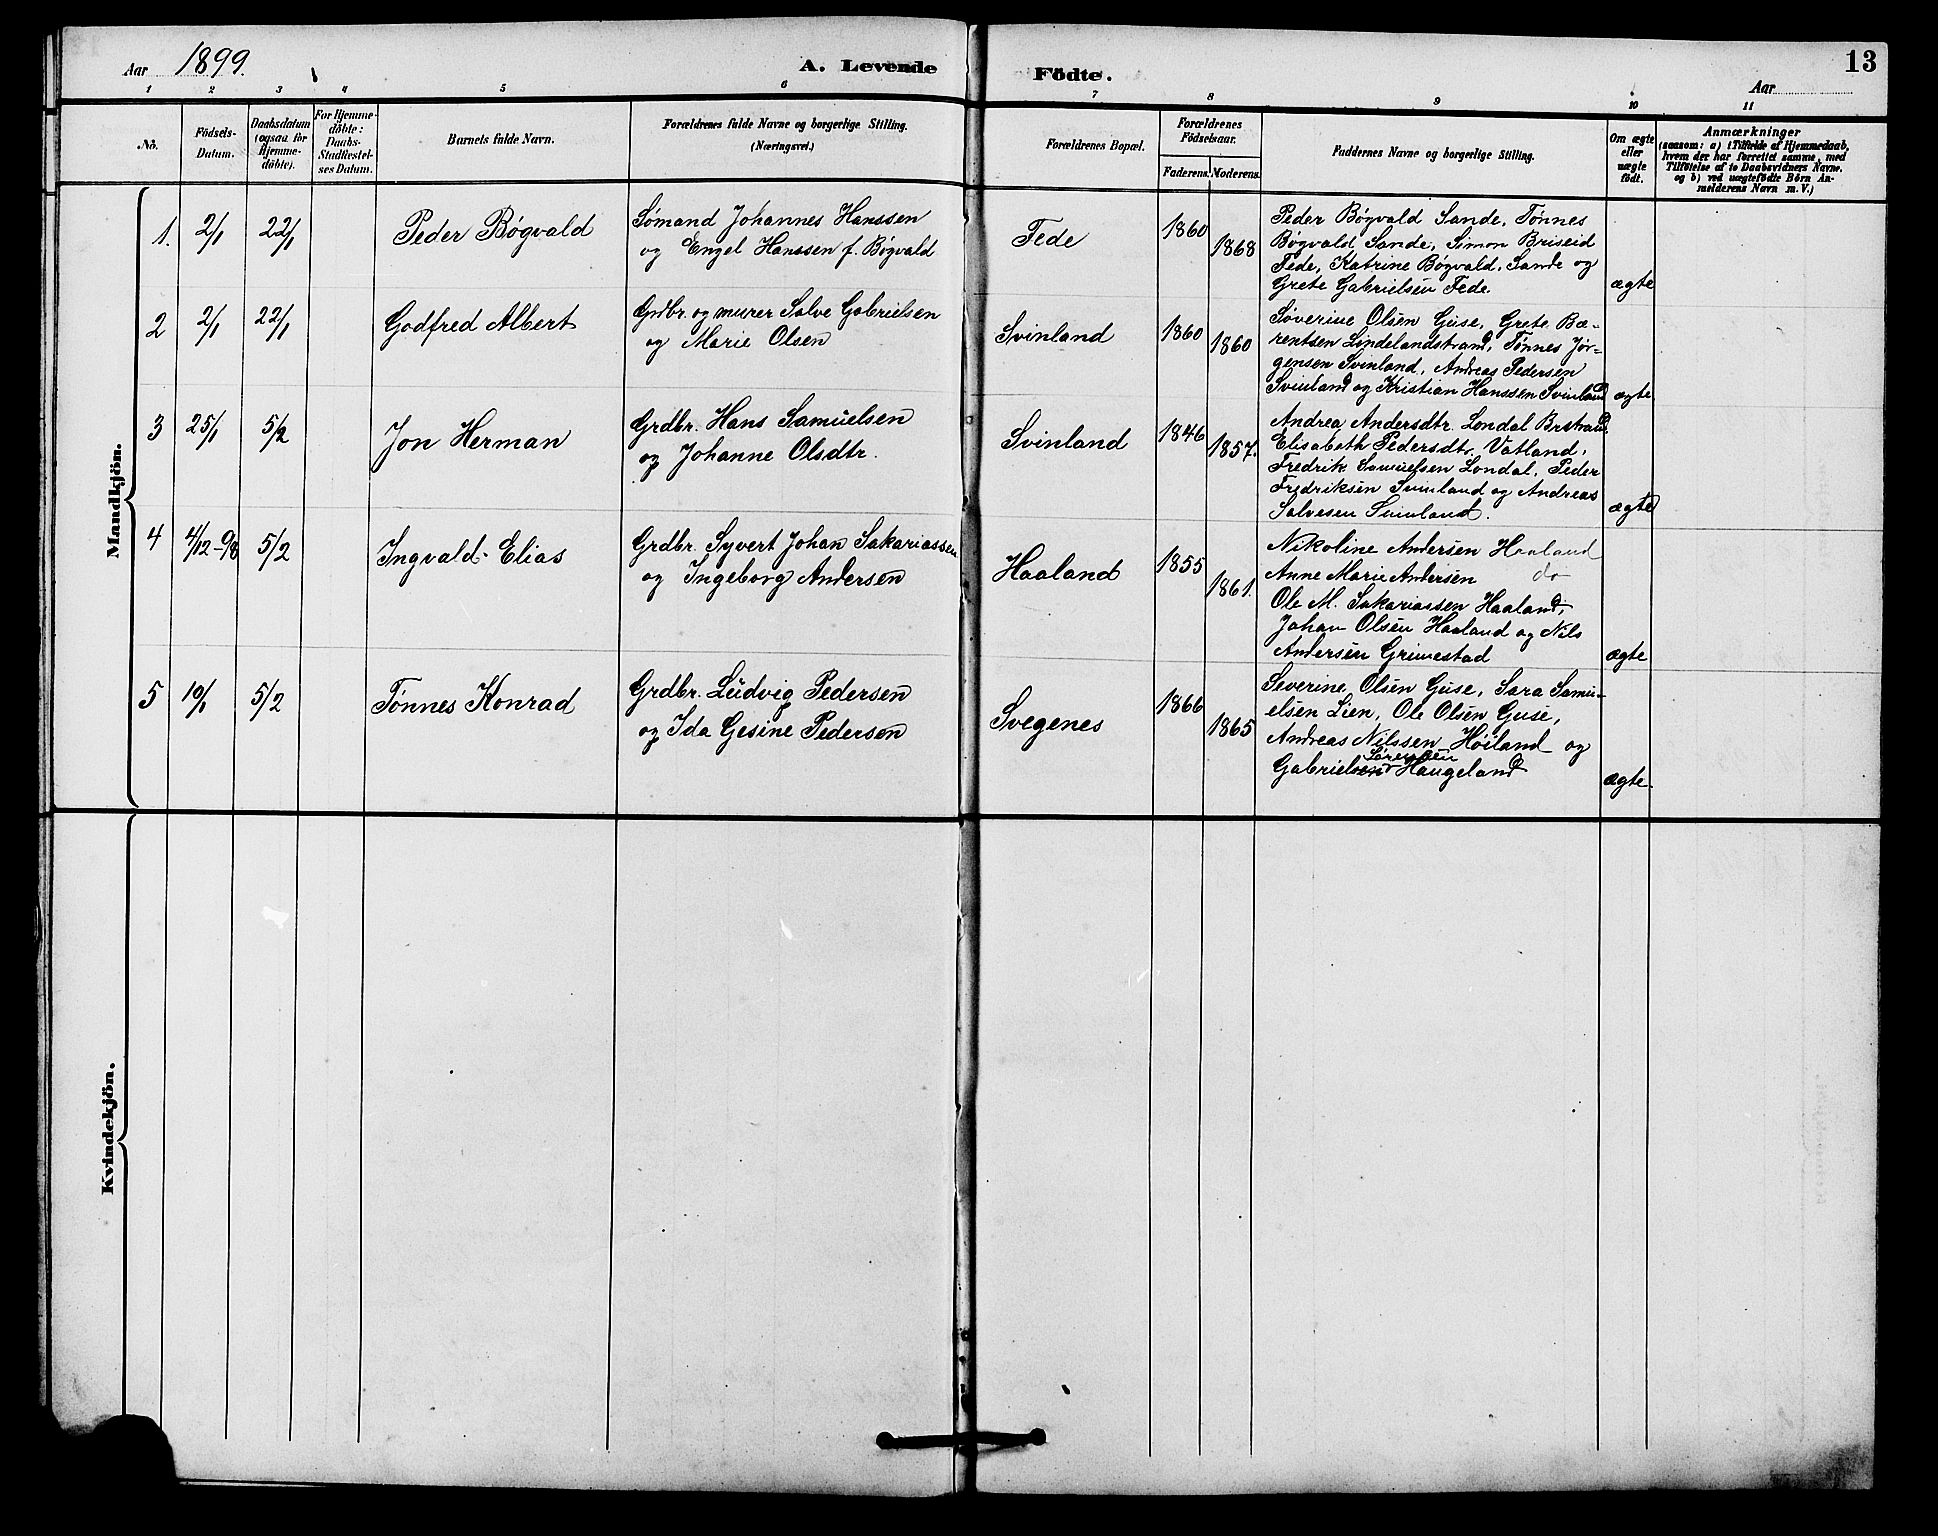 Aar 1899.
A. Levende Födte.
13
Aar
1 2 3 4 5 6 7 8 9 10 11
No.
Födsels-
Datum.
Daabsdatum
(ogsaa for
Hjemme-
döbte).
For Hjemme-
döbte:
Daabs-
Stadfæstel-
ses Datum.
Barnets fulde Navn.
Forældrenes fulde Navne og borgerlige Stilling.
(Næringsvei.)
Forældrenes Bopæl.
Forældrenes
Födselsaar.
Faderens. Moderens.
Faddernes Navne og borgerlige Stilling.
Om ægte
eller
uægte
født.
Anmærkninger
(saasom: a) i Tilfælde af Hjemmedaab,
hvem der har forrettet samme, med
Tilföielse af to Daabsvidners Navne,
og b) ved uægtefödte Börn An-
melderens Navn m. V.)
Mandkjön.
1. 2/1 22/1
Peder Bøgvald
Sømand Johannes Hanssen
og Engel Hanssen f. Bøgvald
Fede
1860
1868
Peder Bøgvald Sande, Tønnes
Bøgvald Sande, Simon Briseid
Fede, Katrine Bøgvald, Sande og
Grete Gabrielsen Fede.
ægte
2 2/1 22/1
Godfred Albert
Grdbr. og murer Salve Gabrielsen
og Marie Olsen
Svinland
1860
1860
Søverine Olsen Guse, Grete Bæ-
rentsen Lindelandstrand, Tønnes Jør-
gensen Svinland, Andreas Pedersen
Svinland og Kristian Hanssen Svinland
ægte
3 25/1 5/2
Jon Herman
Grdbr. Hans Samuelsen
og Johanne Olsdtr.
Svinland
1846
1857.
Andrea Andersdtr. Londal Brstrand.
Elisabeth Pedersdtr. Vatland,
Fredrik Samuelsen Londal, Peder
Fredriksen Svinland og Andreas
Salvesen Svinland.
ægte
4 4/12-98 5/2
Ingvald Elias
Grdbr. Syvert Johan Sakariassen
og Ingeborg Andersen
Haaland
1855
1861.
Nikoline Andersen Haaland
Anne Marie Andersen do
Ole M. Sakariassen Haaland,
Johan Olsen Haaland og Nils
Andersen Grimestad
ægte
5 10/1 5/2
Tønnes Konrad
Grdbr. Ludvig Pedersen
og Ida Gesine Pedersen
Svegenes
1866
1865
Severine Olsen Guse, Sara Samu-
elsen Lien, Ole Olsen Guse,
Andreas Nilssen Høiland og
Sørensen
Gabrielsen Haugeland
ægte.
Kvindekjön.